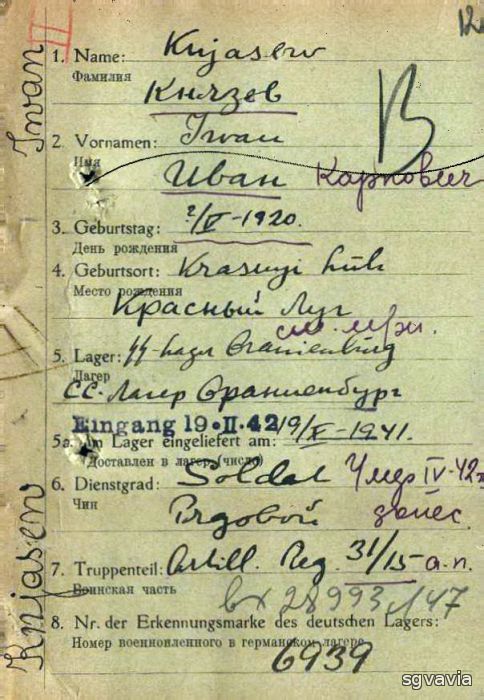 12
Iwan
II
1. Name: Knjasew
Фамилия
Князев
2 Vornamen: Iwan
Имя
Иван Карпович
В
3. Geburtstag: ?/V-1920.
День рождения
4. Geburtsort: Krasnyi Luk
Место рождения
Красный Луг
см. мри.
5. Lager: SS-Lager Oranienburg
Лагер
СС. Лагер Ораниенбург
Eingang 19.II.42
5a. Im Lager eingeliefert am: 19/X-1941.
Доставлен в лагер (число)
6. Dienstgrad: Soldat Умер IV-42г
Чин
Рядовой здесь.
7. Truppenteil: Artill. Reg. 31/15 а.п.
Воинская часть
вх 28993, 147
8. Nr. der Erkennungsmarke des deutschen Lagers:
Номер военнопленного в германском лагере
6939
Knjasew
sgvavia